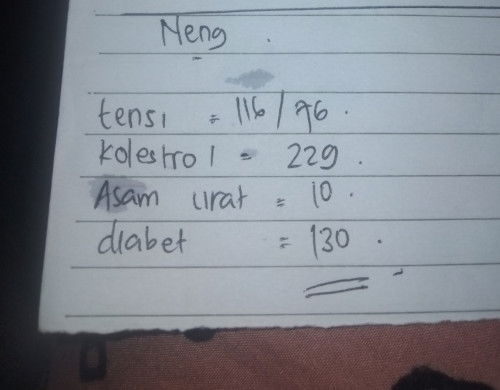 Neng.
tensi = 116/76.
Kolestrol = 229.
Asam urat = 10.
diabet = 130.